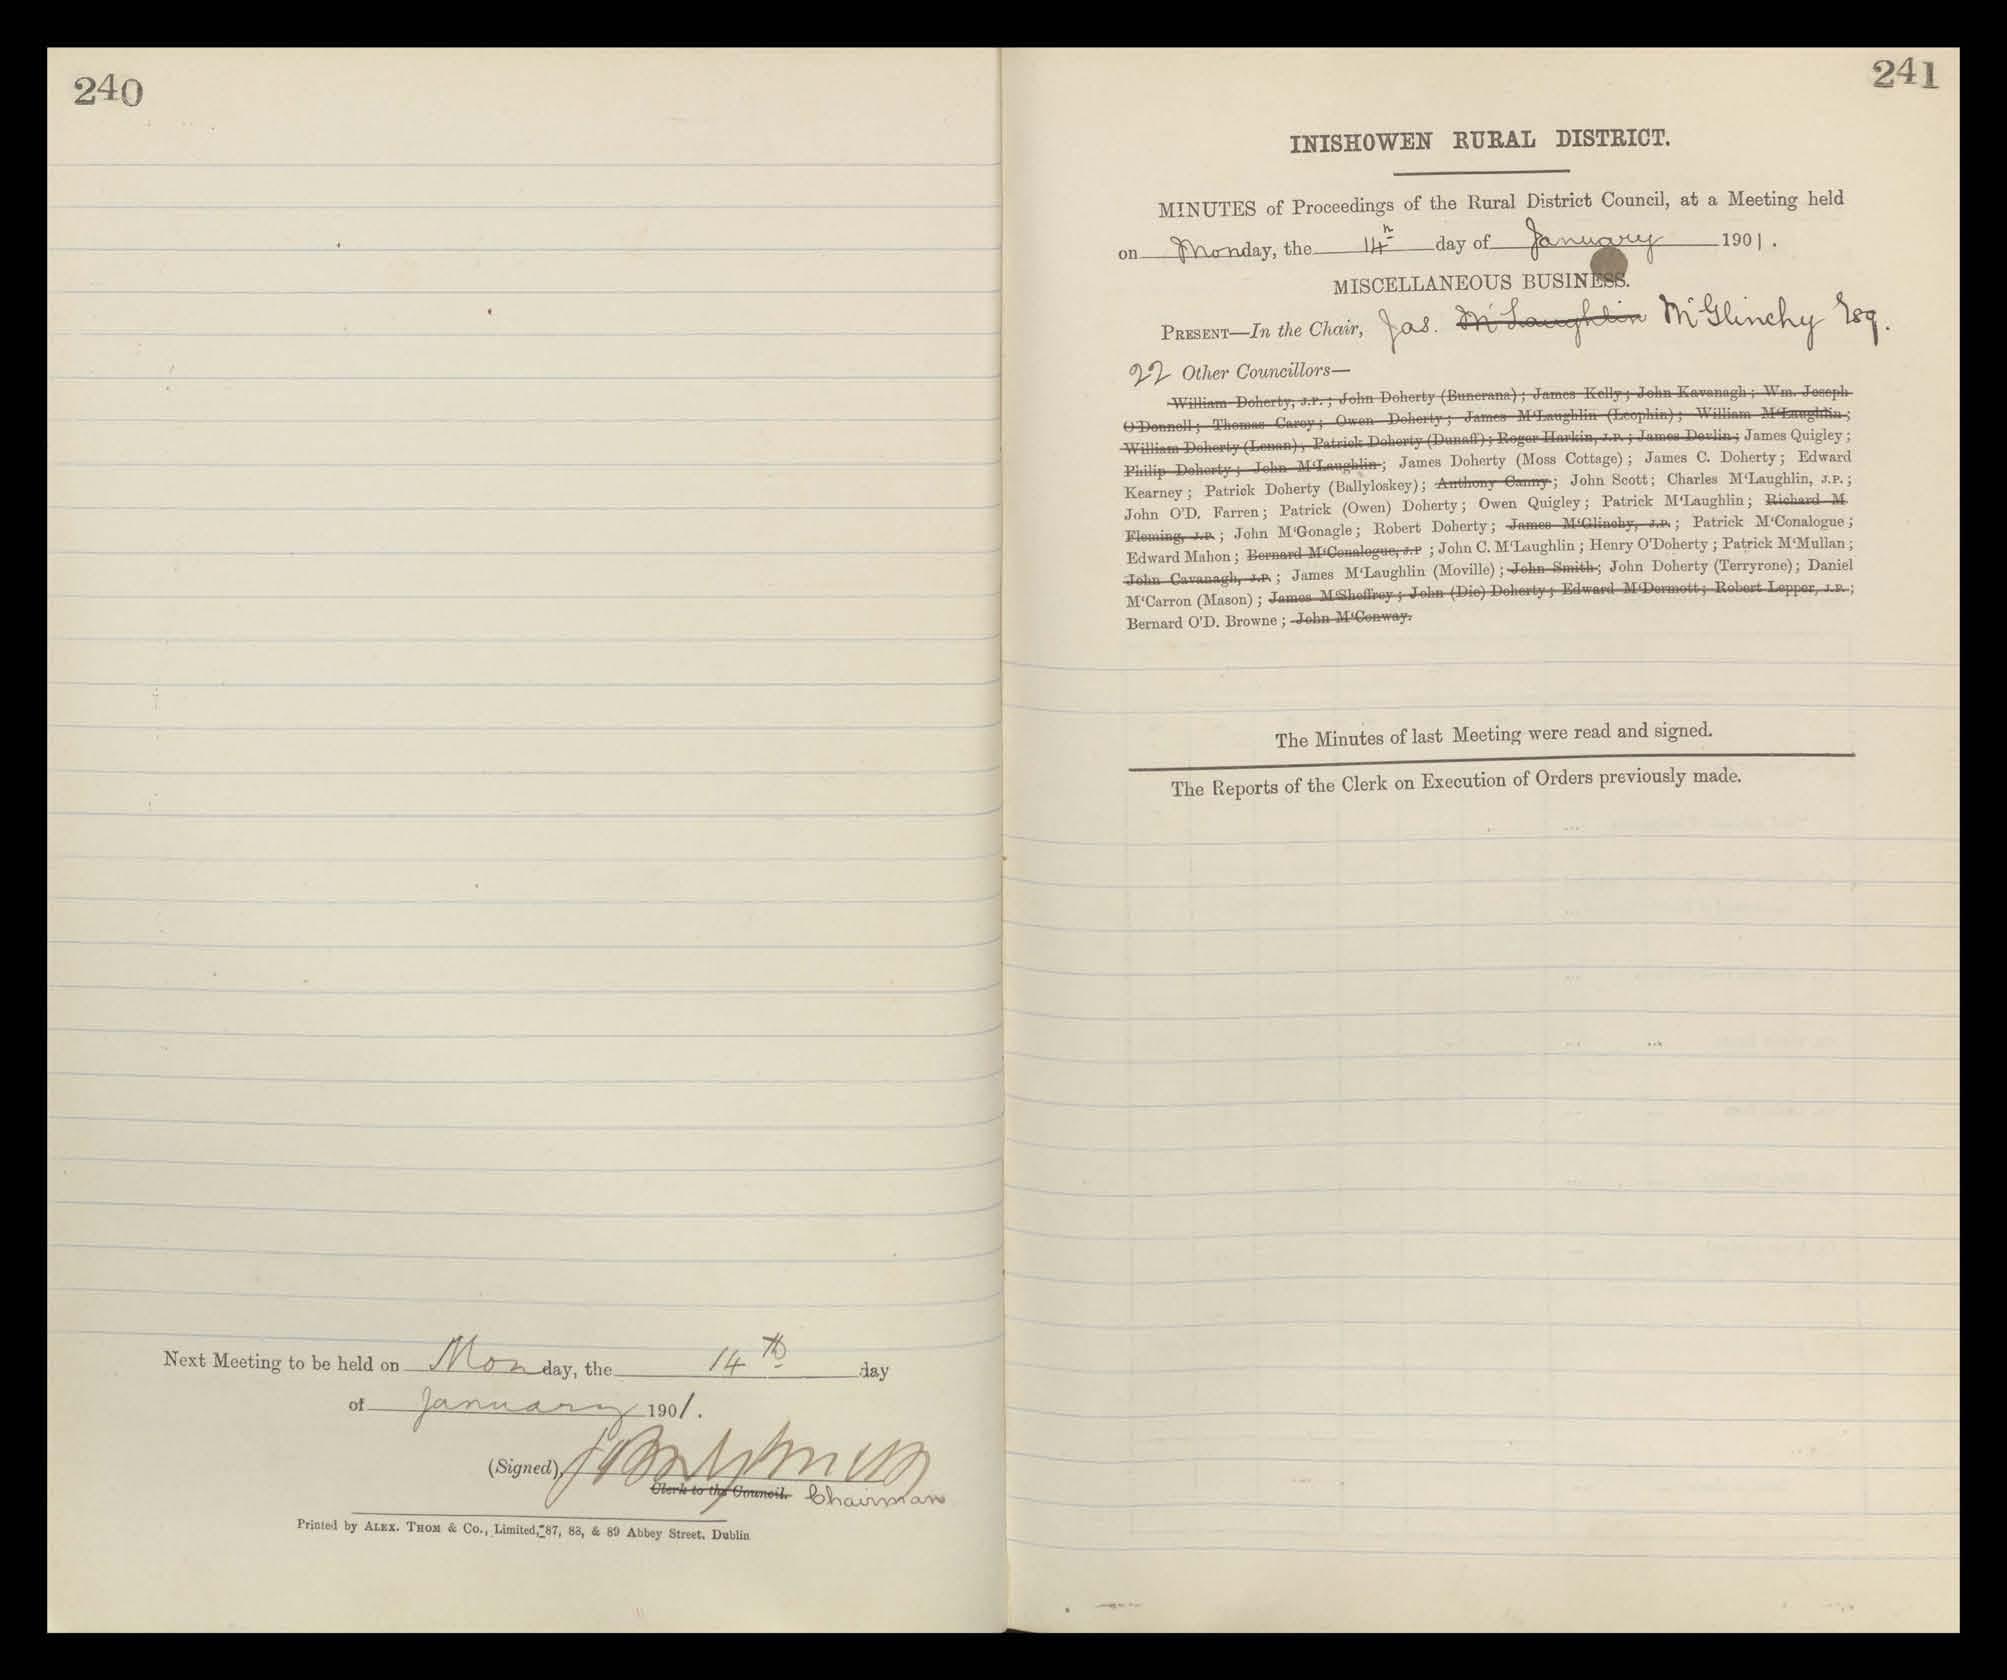 240
Next Meeting to be held on Monday, the 14th day
of January 1901.
(Signed),
Clerk to the Council. Chairman
Printed by ALEX. THOM & Co., Limited, 87, 88, & 89 Abbey Street, Dublin
241
INISHOWEN RURAL DISTRICT.
MINUTES of Proceedings of the Rural District Council, at a Meeting held
on Monday, the 14th day of January 1901.
MISCELLANEOUS BUSINESS.
PRESENT—In the Chair, Jas. McLaughlin McGlinchy Esq.
22 Other Councillors—
William Doherty, J.P.; John Doherty (Buncrana); James Kelly; John Kavanagh; Wm. Joseph
O'Donnell; Thomas Carey; Owen Doherty; James M'Laughlin (Leophin); William M'Laughlin;
William Doherty (Lenan); Patrick Doherty (Dunaff); Roger Harkin, J.P.; James Devlin; James Quigley;
Philip Doherty; John M'Laughlin; James Doherty (Moss Cottage); James C. Doherty; Edward
Kearney; Patrick Doherty (Ballyloskey); Anthony Canny; John Scott; Charles M'Laughlin, J.P.;
John O'D. Farren; Patrick (Owen) Doherty; Owen Quigley; Patrick M'Laughlin; Richard M
Fleming, J.P.; John M'Gonagle; Robert Doherty; James M'Glinchy, J.P.; Patrick M'Conalogue;
Edward Mahon; Bernard M'Conalogue, J.P; John C. M'Laughlin; Henry O'Doherty; Patrick M'Mullan;
John Cavanagh, J.P.; James M'Laughlin (Moville); John Smith; John Doherty (Terryrone); Daniel
M'Carron (Mason); James M'Sheffrey; John (Die) Doherty; Edward M'Dermott; Robert Lepper, J.P.;
Bernard O'D. Browne; John M'Conway.
The Minutes of last Meeting were read and signed.
The Reports of the Clerk on Execution of Orders previously made.